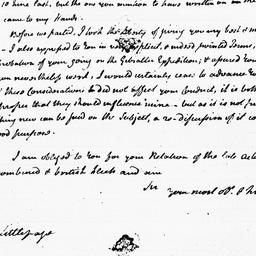 10 June last, but the one you mention to have written on an
came to my hands.
Before we parted, I took the Liberty of giving you my best &
I also expressed to You in explicit, & indeed pointed Terms,
of your going on the Gibralter Expedition, & assured You
nevertheless would, I would certainly cease to advance
these Considerations did not affect your Conduct, it is both
proper that they should influence mine — but as it is not
thing new can be said on the Subject, a re-discussion of it
good purposes.
I am obliged to You for your Relation of the late
combined & british fleets and am
Sir your most Ob.
Littlepage